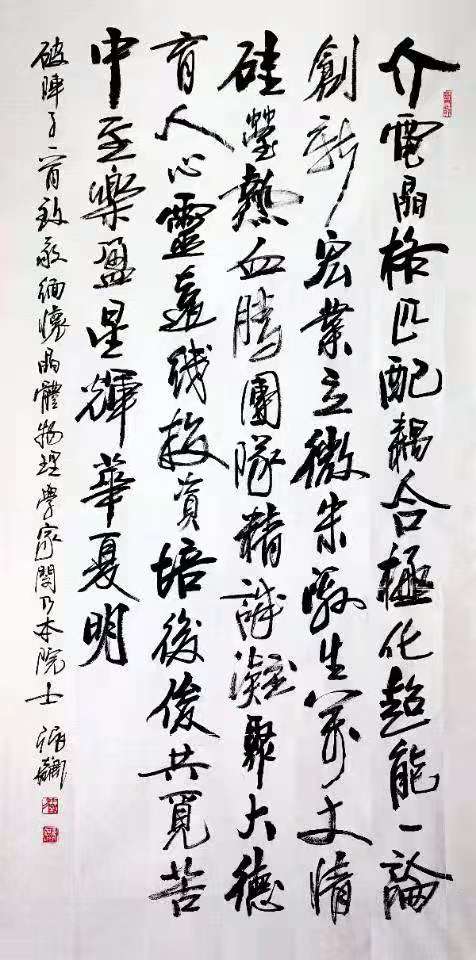 介電晶格匹配耦合極化超能一論
創新宏業立微米激生萬丈情
硅瑩熱血騰團隊精誠凝聚大德
育人心靈遠线投資培後俊共覓苦
中至樂盈星輝華夏明
破陣子一首致敬緬懷晶體物理學家閔乃本院士